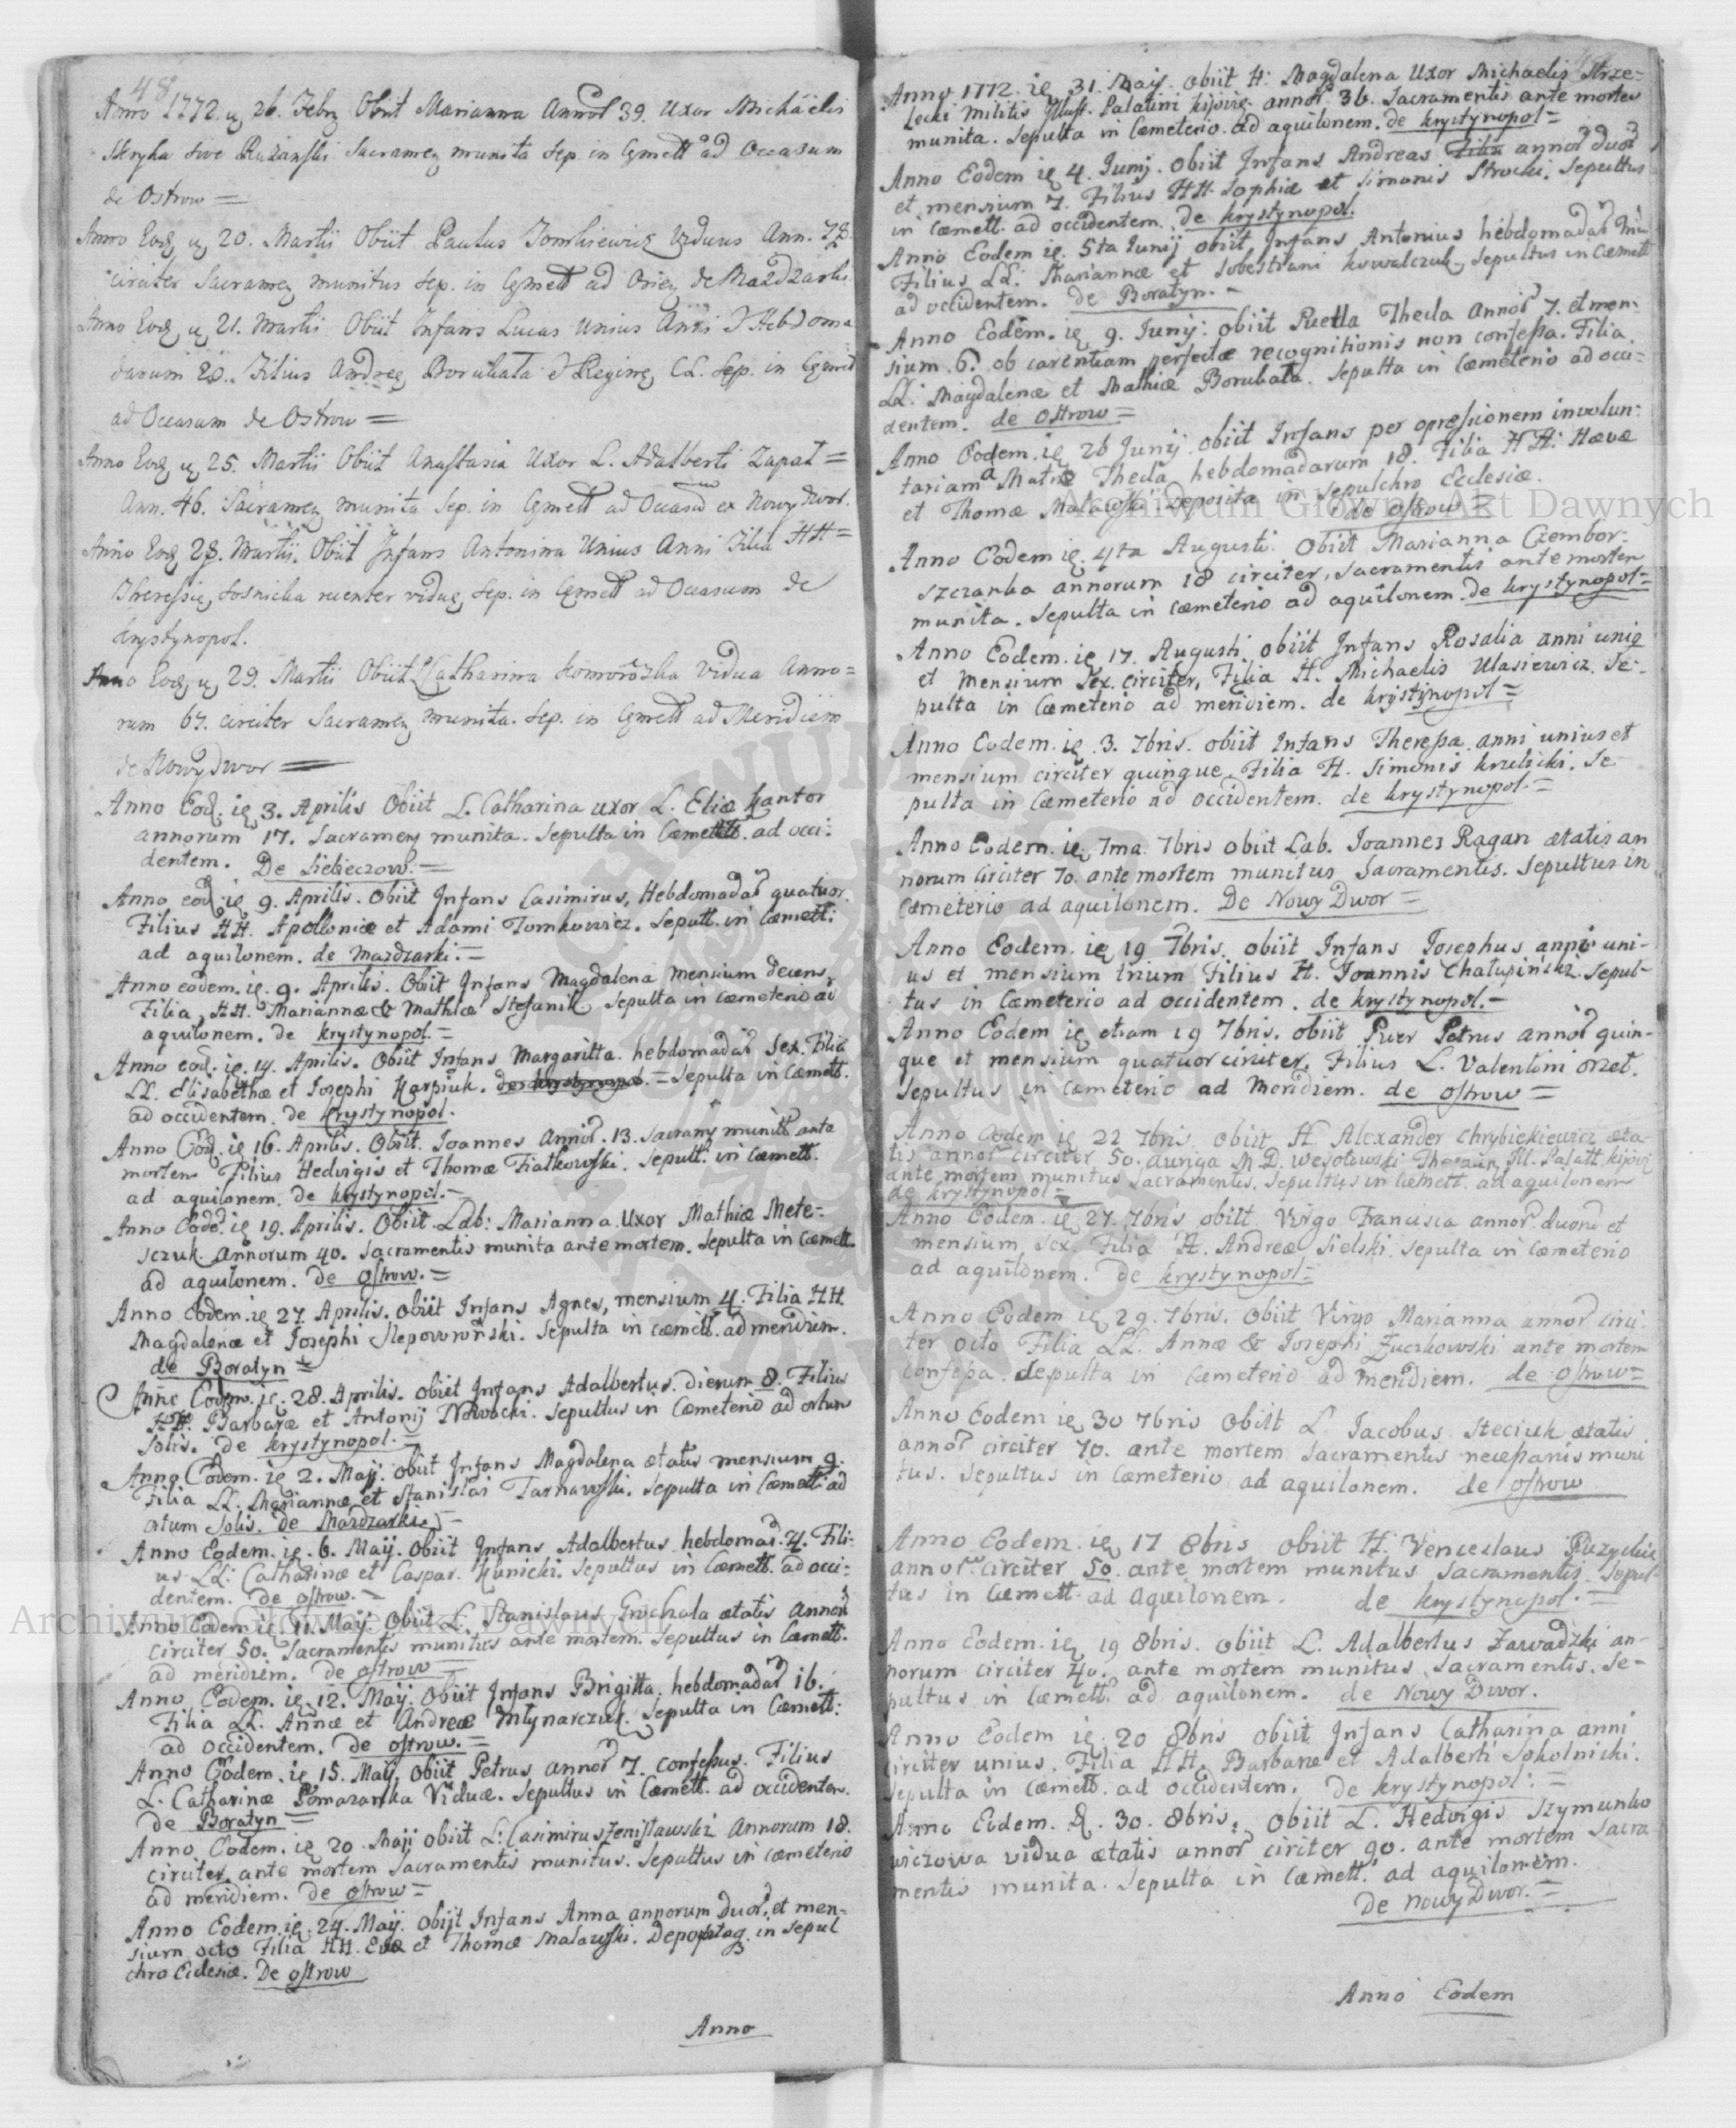 48
Anno 1772. ię 26. Febrę Obiit Marianna Annoꝝ 39. Uxor Michäelis
Skryka sive Ruzanski Sacrameę munita Sep. in Cęmett ad Occasum
de Ostrow =
Anno Eodę ię 20. Martii Obiit Paulus Tomkiewicz Viduus Ann. 78.
circiter Sacrameę munitus Sep. in Cęmett ad Orieę de Mazdzarki
Anno Eodę ię 21. Martii Obiit Infans Lucas Unius Anni & Hebdoma
darum 20. Filius Andreę Borubata & Reginę LL. Sep. in Cęmett
ad Occasum de Ostrow =
Anno Eodę ię 25. Martii Obiit Anastasia Uxor L. Adalberti Zapał =
Ann. 46. Sacrameę munita Sep. in Cęmett ad Occasū ex Nowy dwor.
Anno Eodę 28. Martii. Obiit Infans Antonina Unius Anni Filia HH =
Theressię Sosnicka recenter viduę Sep. in Cęmett ad Occasum de
Krystynopol.
Anno Eodę ię 29. Martii Obiit Catharina Komoroska Vidua Anno =
rum 67. circiter Sacrameę munita. Sep. in Cęmett ad Meridiem
de Nowy dwor =
Anno Eod. ię 3. Aprilis Obiit L. Catharina uxor L. Eliæ Kantor
annorum 17. Sacrameę munita. Sepulta in Cæmett. ad occi-
dentem. De Sielieczow. =
Anno eod. ię 9. Aprilis. Obiit Infans Casimirus, Hebdomadaꝝ quatuor.
Filius HH. Apolloniæ et Adami Tomkowicz. Sepult. in Cæmett:
ad aquilonem. de Mazdzarki. =
Anno eodem. ię. 9. Aprilis. Obiit Infans Magdalena mensium decem,
Filia, HH. Mariannæ & Mathiæ Stefanik Sepulta in Cæmeterio ad
aquilonem. de Krystynopol. =
Anno eod. ię. 14. Aprilis. Obiit Infans Margaritta. hebdomadaꝝ Sex. Filia
LL. Elisabethæ et Josephi Karpiuk. de Krystynopol. = Sepulta in Cæmett.
ad occidentem. de Krystynopol.
Anno Eod. ię 16. Aprilis. Obiit. Joannes Annoꝝ. 13. Sacramę munitꝰ ante
mortem Filius Hedvigis et Thomæ Fiałkowski. Sepult. in Cæmett.
ad aquilonem. de Krystynopol. -
Anno Eode. ię 19. Aprilis. Obiit Lab: Marianna Uxor Mathiæ Mete-
sczuk Annorum 40. Sacramentis munita ante mortem. Sepulta in Cæmett.
ad aquilonem. De Ostrow. =
Anno Eodem. ię 27. Aprilis. Obiit Infans Agnes, mensium 4. Filia HH.
Magdalenæ et Josephi Sleporowński. Sepulta in cæmett. ad meridiem.
de Boratyn =
Anno Eodem. ię. 28. Aprilis. obiit Infans Adalbertus. Dierum 8. Filius
HH. Barbaræ et Antonij Nowocki. Sepultus in Cæmeterio ad ortum
Solis. De Krystynopol. =
Anno Eodem. ię 2. Maij. obiit Infans Magdalena ætatis mensium 9.
Filia LL. Mariannæ et Stanislai Tarnawski. Sepulta in Cæmett ad
ortum Solis. De Mazdzarki =
Anno Eodem. ię. 6. Maij. Obiit Infans Adalbertus hebdomad. 4. Fili-
us LL. Catharinæ et Caspar. Kunicki. Sepultus in Cæmett. ad occi-
dentem. De ostrow. =
Anno Eodem ię 11. Maij Obiit L. Stanislaus Grochala ætatis annoꝝ
circiter 50. Sacramentis munitus ante mortem. Sepultus in Cæmett.
ad meridiem. de ostrow =
Anno Eodem. ię. 12. Maij. Obiit Infans Brigitta. hebdomadaꝝ 16.
Filia LL. Annæ et Andreæ Młynarczuk. Sepulta in Cæmett.
ad occidentem. De ostrow. =
Anno Eodem. ię 15. Maij, obiit Petrus annoꝝ 7. confessus. Filius
L. Catharinæ Pomaranka Viduæ. Sepultus in Cæmett. ad occidentem.
De Boratyn =
Anno Eodem. ię 20. Maij obiit L. Casimirus Zenislawski Annorum 18.
circiter, ante mortem Sacramentis munitus. Sepultus in cæmeterio
ad meridiem. De ostrow =
Anno Eodem. ię. 24. Maij. obijt Infans Anna annorum Duoꝝ, et men-
sium octo Filia HH. Evæ et Thomæ Maławski. Deposita in Sepul
chro Eclesiæ. De ostrow
Anno
Anno 1772. ię 31. Maij. obiit H. Magdalena Uxor Michaelis Strze-
lecki Militis Illust. Palatini Kijovię. annoꝝ 36. Sacramentis ante mortem
munita. Sepulta in Cæmeterio. ad aquilonem. de Krystynopol =
Anno Eodem ię 4. Junij. obiit Infans Andreas Filiu annoꝝ duoꝝ
et mensium 7. Filius HH. Sophiæ et Simonis Strocki. Sepultus
in Cæmett. ad occidentem. de Krystynopol.
Anno Eodem ię. 5ta Junij obiit Infans Antonius hebdomadaꝝ
Filius LL. Mariannæ et Sobestiani Kowalczuk, Sepultus in Cæmett
ad occidentem. De Boratyn. -
Anno Eodem. ię. 9. Junij: obiit Puella Thecla Annoꝝ 7. et men-
sium. 6. ob carentiam perfectæ recognitionis non confessa. Filia
LL. Magdalenæ et Mathiæ Borubata. Sepulta in Cæmeterio ad occi-
dentem. de Ostrow =
Anno Eodem. ię 26 Junij obiit Infans per opressionem involun-
tariam a Matre Thecla hebdomadarum 18. Filia HH. Hævæ
et Thomæ Maławski Deposita in Sepulchro Ecclesiæ.
de ostrow =
Anno Eodem ię. 4ta Augusti. Obiit Marianna Czembor-
szczanka annorum 18 circiter, Sacramentis ante mortem
munita. Sepulta in cæmeterio ad aquilonem. de Krystynopol =
Anno Eodem. ię 17. Augusti obiit Infans Rosalia anni uniꝯ
et mensium Sex. circiter, Filia H. Michaelis Ulasiewicz. Se-
pulta in Cæmeterio ad meridiem. de Krystynopol =
Anno Eodem. ię. 3. 7bris. obiit Infans Theressa anni unius et
mensium circiter quinque. Filia H. Simonis Krulicki. Se-
pulta in Cæmeterio ad occidentem. de Krystynopol. =
Anno Eodem. ię. 7ma. 7bris obiit Lab. Joannes Ragan ætatis an
norum circiter 70. ante mortem munitus Sacramentis. Sepultus in
Cæmeterio ad aquilonem. De Nowy Dwor =
Anno Eodem ię 19 7bris. obiit Infans Josephus anni uni-
us et mensium trium Filius H. Joannis Chałupiński. Sepul-
tus in Cæmeterio ad occidentem. de Krystynopol. -
Anno Eodem ię etiam 19 7bris. obiit Puer Petrus annoꝝ quin-
que et mensium quatuor circiter, Filius L. Valentini orzet.
Sepultus in Cæmeterio ad Meridiem. de ostrow =
Anno Eodem ię 22 7bris obiit H. Alexander Chrybickiewicz æta-
tis annoꝝ circiter 50. auriga M. D. Wesołowski Ill. Palatt. Kijov
ante mortem munitus Sacramentis. Sepultus in Cæmett. ad aquilonem
de Krystynopol =
Anno Eodem. ię 27. 7bris obiit Virgo Francisca annoꝝ duoꝝ et
mensium Sex. Filia H. Andreæ Sielski Sepulta in Cæmeterio
ad aquilonem. De Krystynopol =
Anno Eodem ię 29. 7bris. Obiit Virgo Marianna annoꝝ circi-
ter octo Filia LL. Annæ & Josephi Zuczkowski ante mortem
confessa. Sepulta in Cæmeterio ad meridiem. de ostrow =
Anno Eodem ię 30 7bris obiit L Jacobus Steciuk ætatis
annoꝝ circiter 70. ante mortem Sacramentis necessariis muni
tus. Sepultus in Cæmeterio ad aquilonem. de ostrow
Anno Eodem. ię 17 8bris obiit H. Venceslaus
annoꝝ circiter 50 ante mortem munitus Sacramentis. Sepul-
tus in Cæmett. ad Aquilonem. de Krystynopol. =
Anno Eodem. ię 19 8bris. obiit L. Adalbertus Zawadzki an-
norum circiter 40. ante mortem munitus Sacramentis. Se-
pultus in Cæmett. ad aquilonem. de Nowy Dwor.
Anno Eodem ię 20 8bris obiit Infans Catharina anni
circiter unius. Filia HH. Barbaræ et Adalberti Sokolnicki.
Sepulta in Cæmett. ad occidentem. De Krystynopol. =
Anno Eodem. 30. 8bris. obiit L. Hedvigis Szymunko
wiczowa vidua ætatis annoꝝ circiter 90. ante mortem Sacra
mentis munita. Sepulta in Cæmett. ad aquilonem.
De Nowy Dwor. =
Anno Eodem
Archiwum Główne Akt Dawnych
Archiwum Główne Akt Dawnych